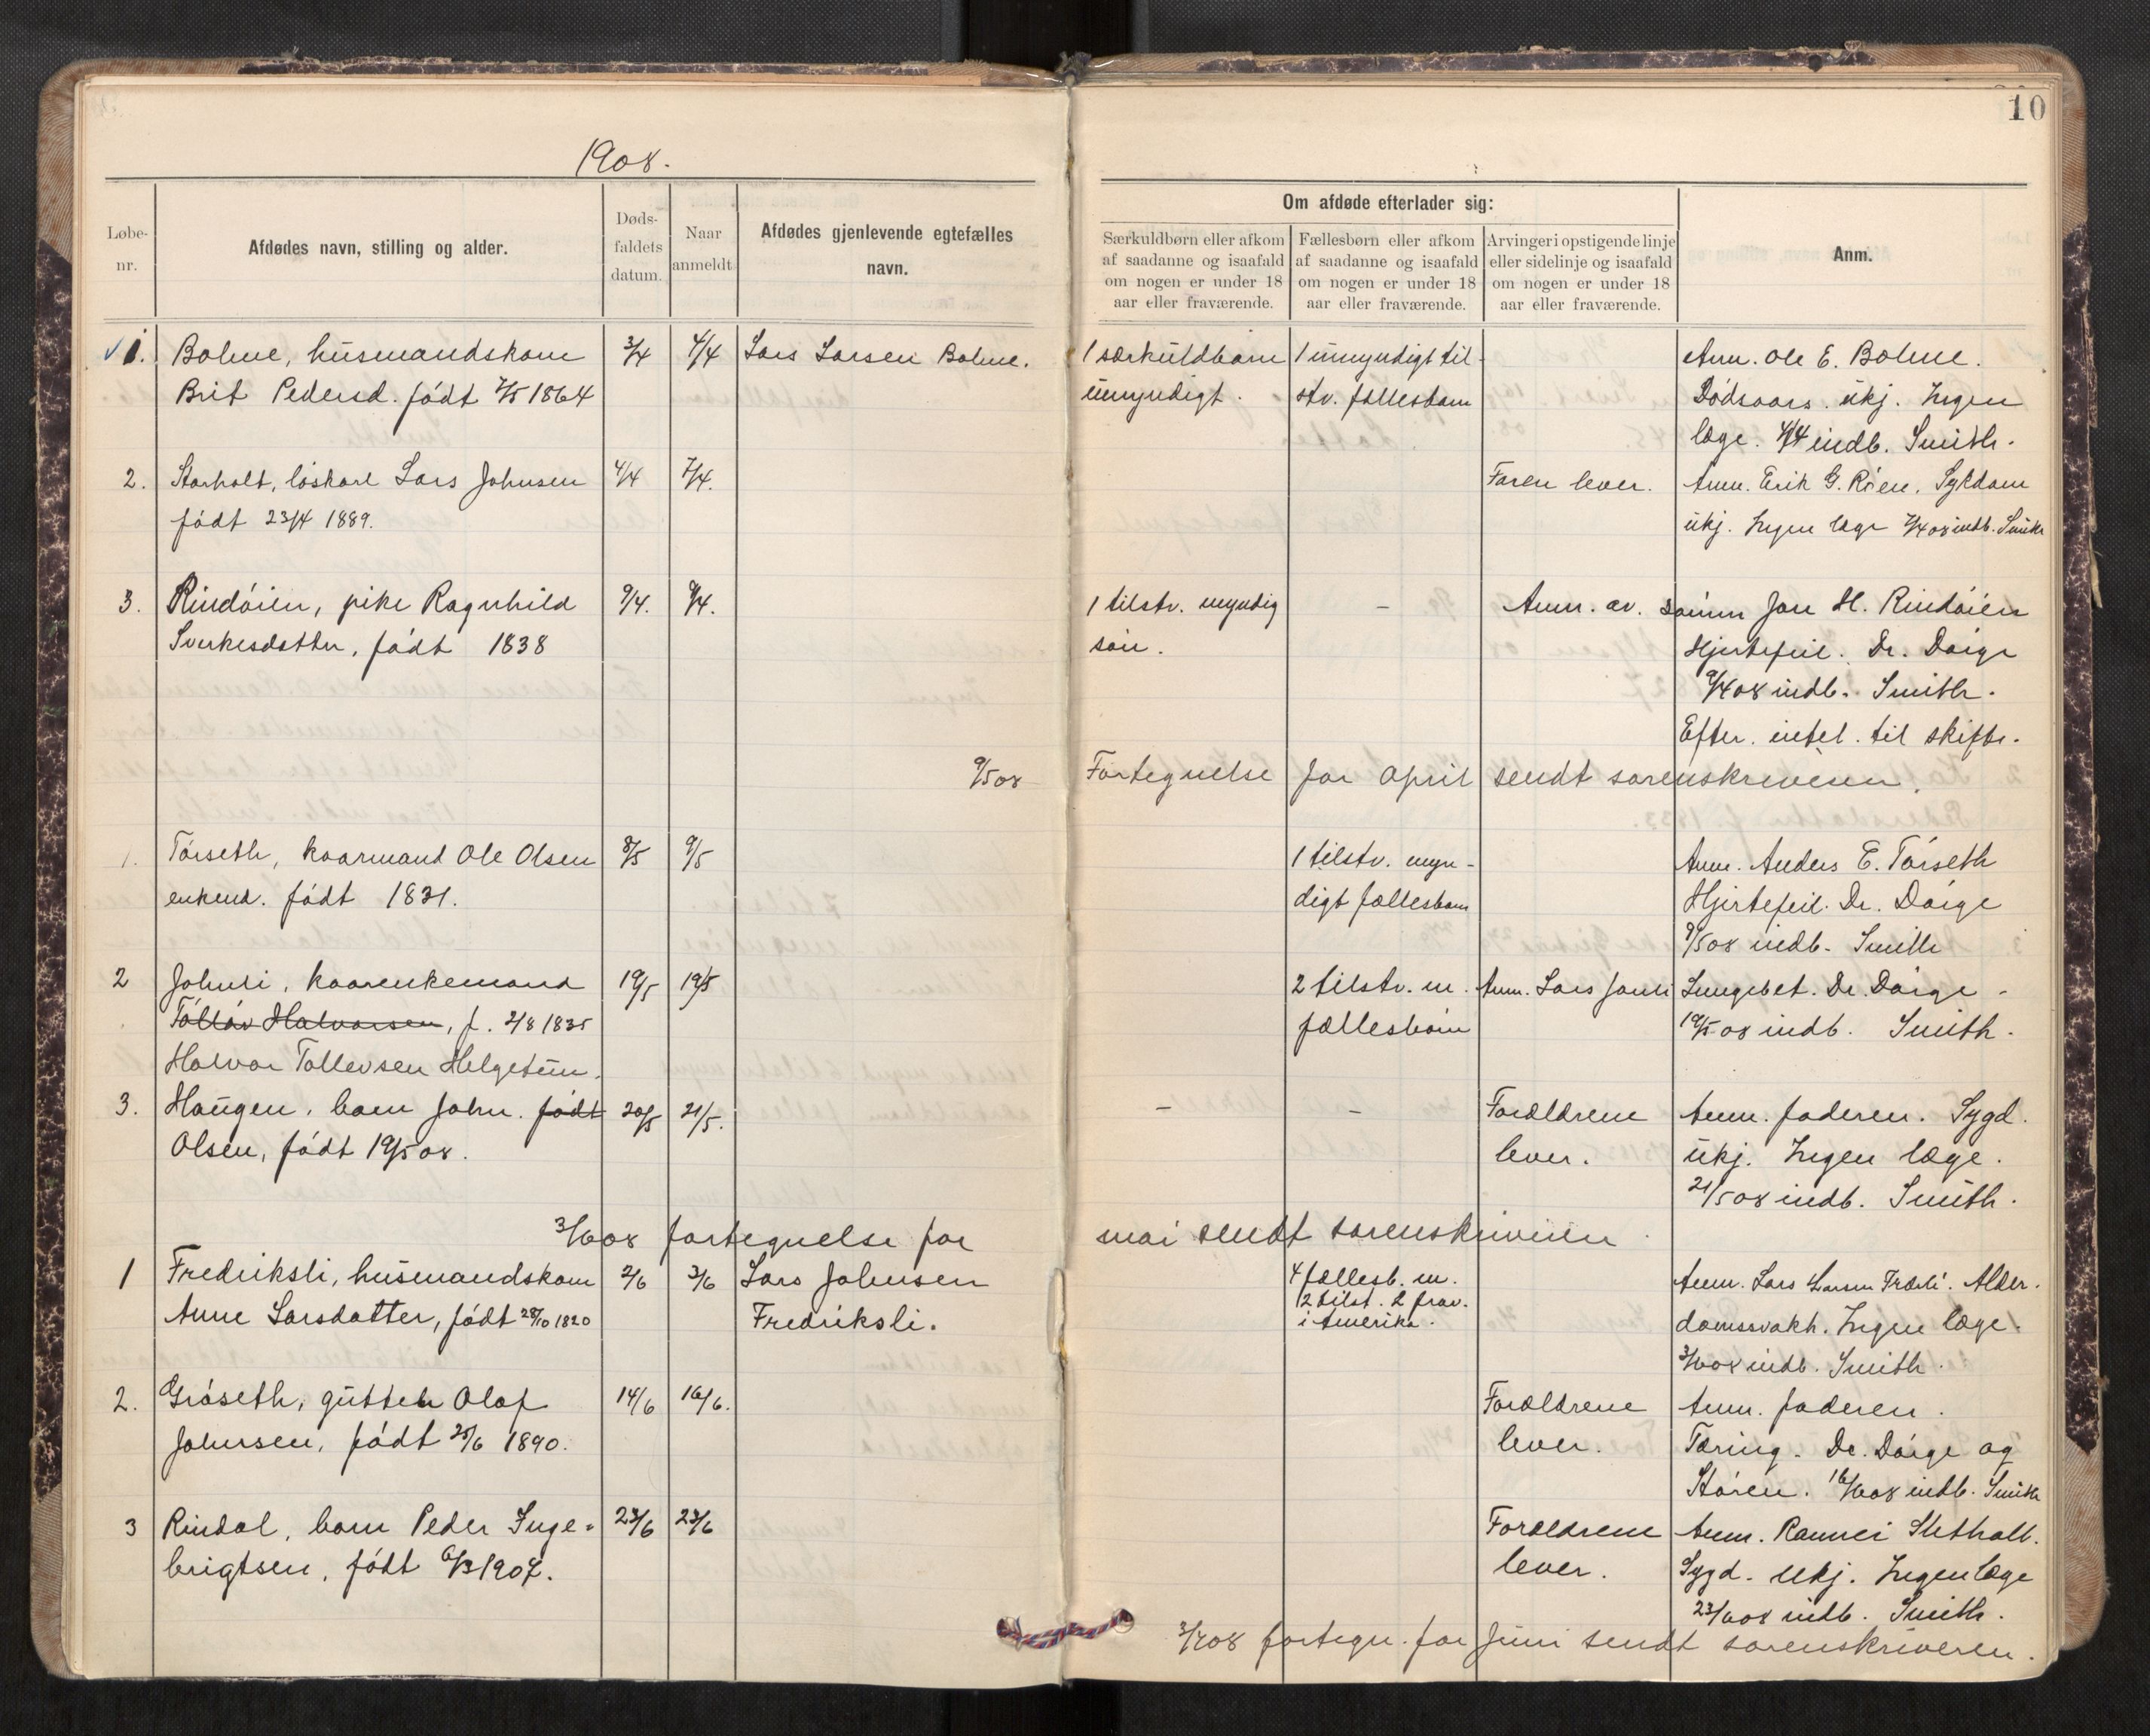 10
1908.
Løbe-
nr.
Afdødes navn, stilling og alder.
Døds-
faldets
datum.
Naar
anmeldt
Afdødes gjenlevende egtefælles
navn.
Om afdøde efterlader sig:
Særkuldbørn eller afkom
af saadanne og isaafald
om nogen er under 18
aar eller fraværende.
Fællesbørn eller afkom
af saadanne og isaafald
om nogen er under 18
aar eller fraværende.
Arvinger i opstigende linje
eller sidelinje og isaafald
om nogen er under 18
aar eller fraværende.
Anm.
1. Bolme, husmandskone 3/4 4/4 Lars Larsen Bolme. 1 særkuldbarn 1 umyndigt til- Anm. Ole E. Bolme.
Brit Pedersd. født 7/5 1864 umyndigt. stv. fællesbarn Dødsaars. ukj. Ingen
læge. 4/4 indb. Smith.
2. Storholt, løskarl Lars Johnsen 4/4 7/4. Faren lever. Anm. Erik G. Røen. Sykdom
født 23/4 1889. ukj. Ingen læge 7/4 08 indb. Smith
3. Rindøien, pike Ragnhild 9/4. 9/4. 1 tilstv. myndig - Anm. av. sønnen Jon H. Rindøien
Sverkesdatter, født 1838 søn. Hjertefeil. Dr. Daige
9/4 08 indb. Smith.
Efter. intet. til skifte.
9/5 08 Fortegnelse for April sendt sorenskriveren.
1. Törseth, kaarmand Ole Olsen 8/5 9/5 1 tilstv. myn- Anm. Anders E. Törseth
enkem. født 1831. digt fællesbarn Hjertefeil. Dr. Daige
9/5 08 indb. Smith
2 Johnli, kaarenkemand 19/5 19/5 2 tilstv. m. Anm. Lars Jonli Lungebet. Dr. Daige -
Tollav Halvorsen, f. 2/8 1835 fællesbörn 19/5 08 indb. Smith.
Halvor Tollevsen Helgetun.
3. Haugen, barn John. født 20/5 21/5. - - Forældrene Anm. faderen. Sygd.
Olsen, født 19/5 08. lever. ukj. Ingen læge.
21/5 08 indb. Smith.
3/6 08 fortegnelse for mai sendt sorenskriveren
1 Fredriksli, husmandskone 2/6 3/6 Lars Johnsen 4 fællesb. m. Anm. Lars Larsen Alder-
Anne Larsdatter, født 28/10 1820 Fredriksli. 2 tilst. 2 frav. domssvakh. Ingen læge.
i Amerika. 3/6 08 indb. Smith.
2. Gråseth, gutten Olaf 14/6 16/6. Forældrene Anm. faderen.
Johnsen, født 25/6 1890. lever. Tæring. Dr. Daige og
Støren. 16/6 08 indb. Smith
3 Rindal, barn Peder Inge- 23/6 23/6 Forældrene Anm.
brigtsen, født 6/3 1907. lever. Sygd. ukj. Ingen læge
23/6 08 indb. Smith.
3/7 08 fortegn. for Juni sendt sorenskriveren.